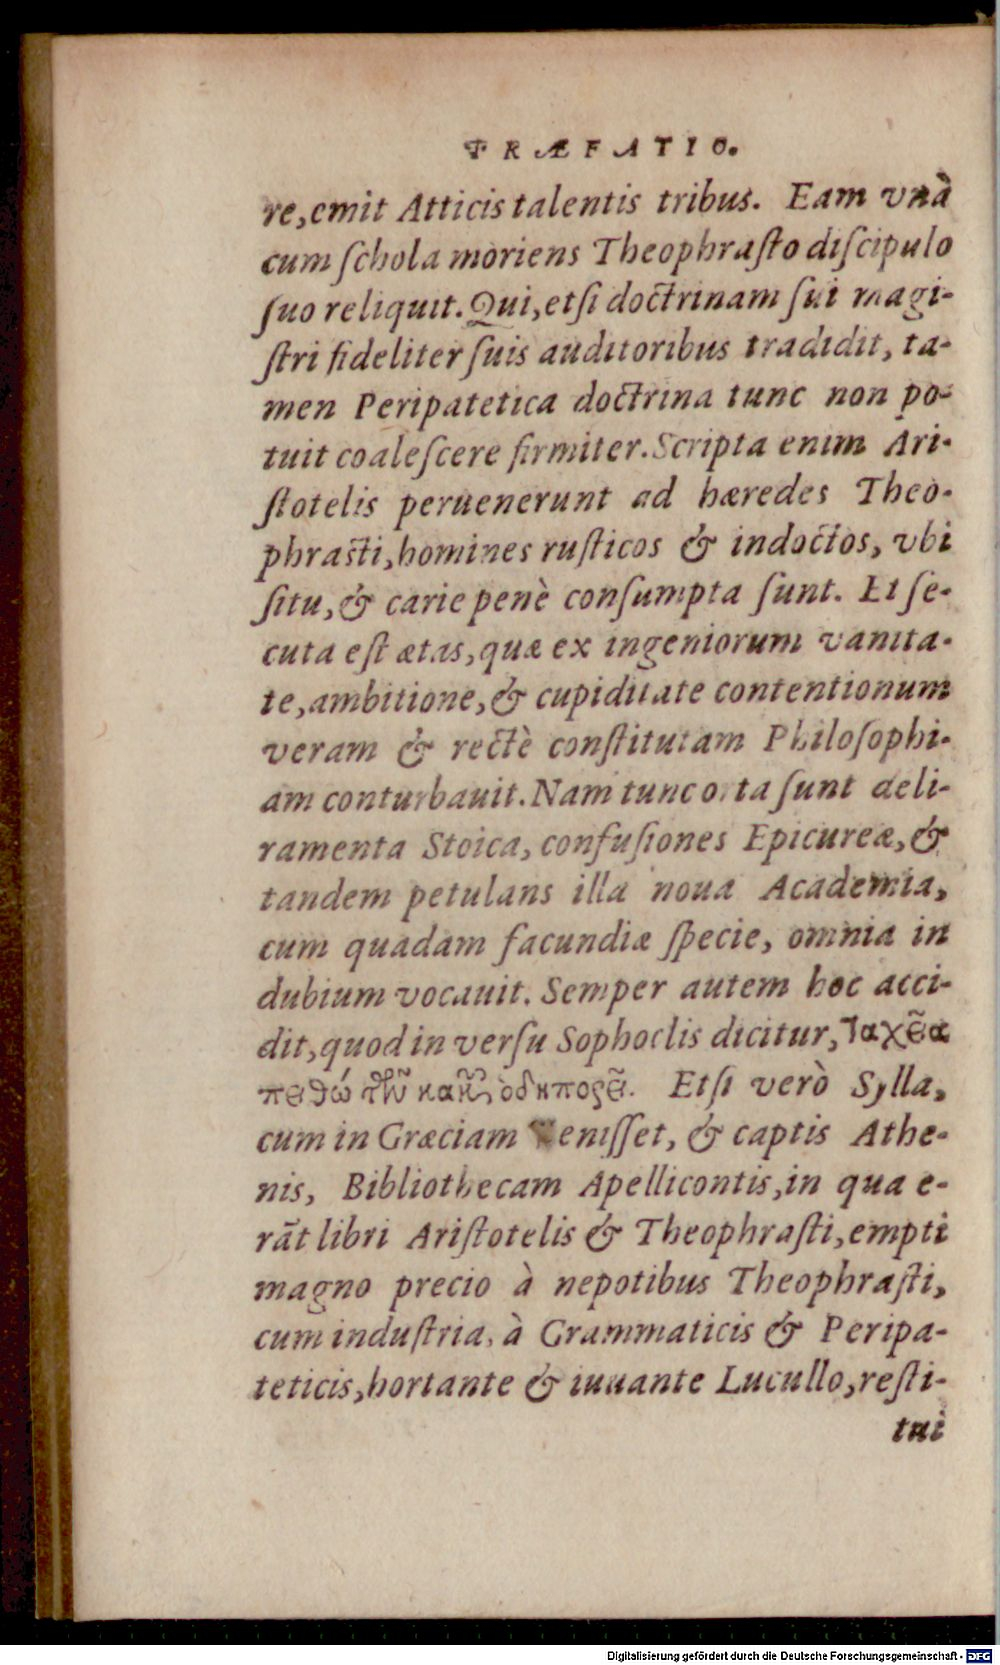 PRÆFATIO.
re, emit Atticis talentis tribus. Eam vnà
cum ſchola moriens Theophraſto diſcipulo
ſuo reliquit. Qui, etſi doctrinam ſui magi-
ſtri fideliter ſuis auditoribus tradidit, ta-
men Peripatetica doctrina tunc non po-
tuit coaleſcere firmiter. Scripta enim Ari-
ſtotelis peruenerunt ad hæredes Theo-
phraſti, homines ruſticos & indoctos, vbi
ſitu, & carie penè conſumpta ſunt. Et ſe-
cuta eſt ætas, quæ ex ingeniorum vanita-
te, ambitione, & cupiditate contentionum
veram & rectè conſtitutam Philoſophi-
am conturbauit. Nam tunc orta ſunt deli-
ramenta Stoica, confuſiones Epicureæ, &
tandem petulans illa noua Academia,
cum quadam facundiæ ſpecie, omnia in
dubium vocauit. Semper autem hoc acci-
dit, quod in verſu Sophoclis dicitur, Ταχεῖα
πειθώ τῶν κακῶν ὁδοιπορεῖ. Etſi verò Sylla,
cum in Græciam veniſſet, & captis Athe-
nis, Bibliothecam Apellicontis, in qua e-
rāt libri Ariſtotelis & Theophraſti, empti
magno precio à nepotibus Theophraſti,
cum induſtria, à Grammaticis & Peripa-
teticis, hortante & iuuante Lucullo, reſti-
tui
Digitalisierung gefördert durch die Deutsche Forschungsgemeinschaft - DFG